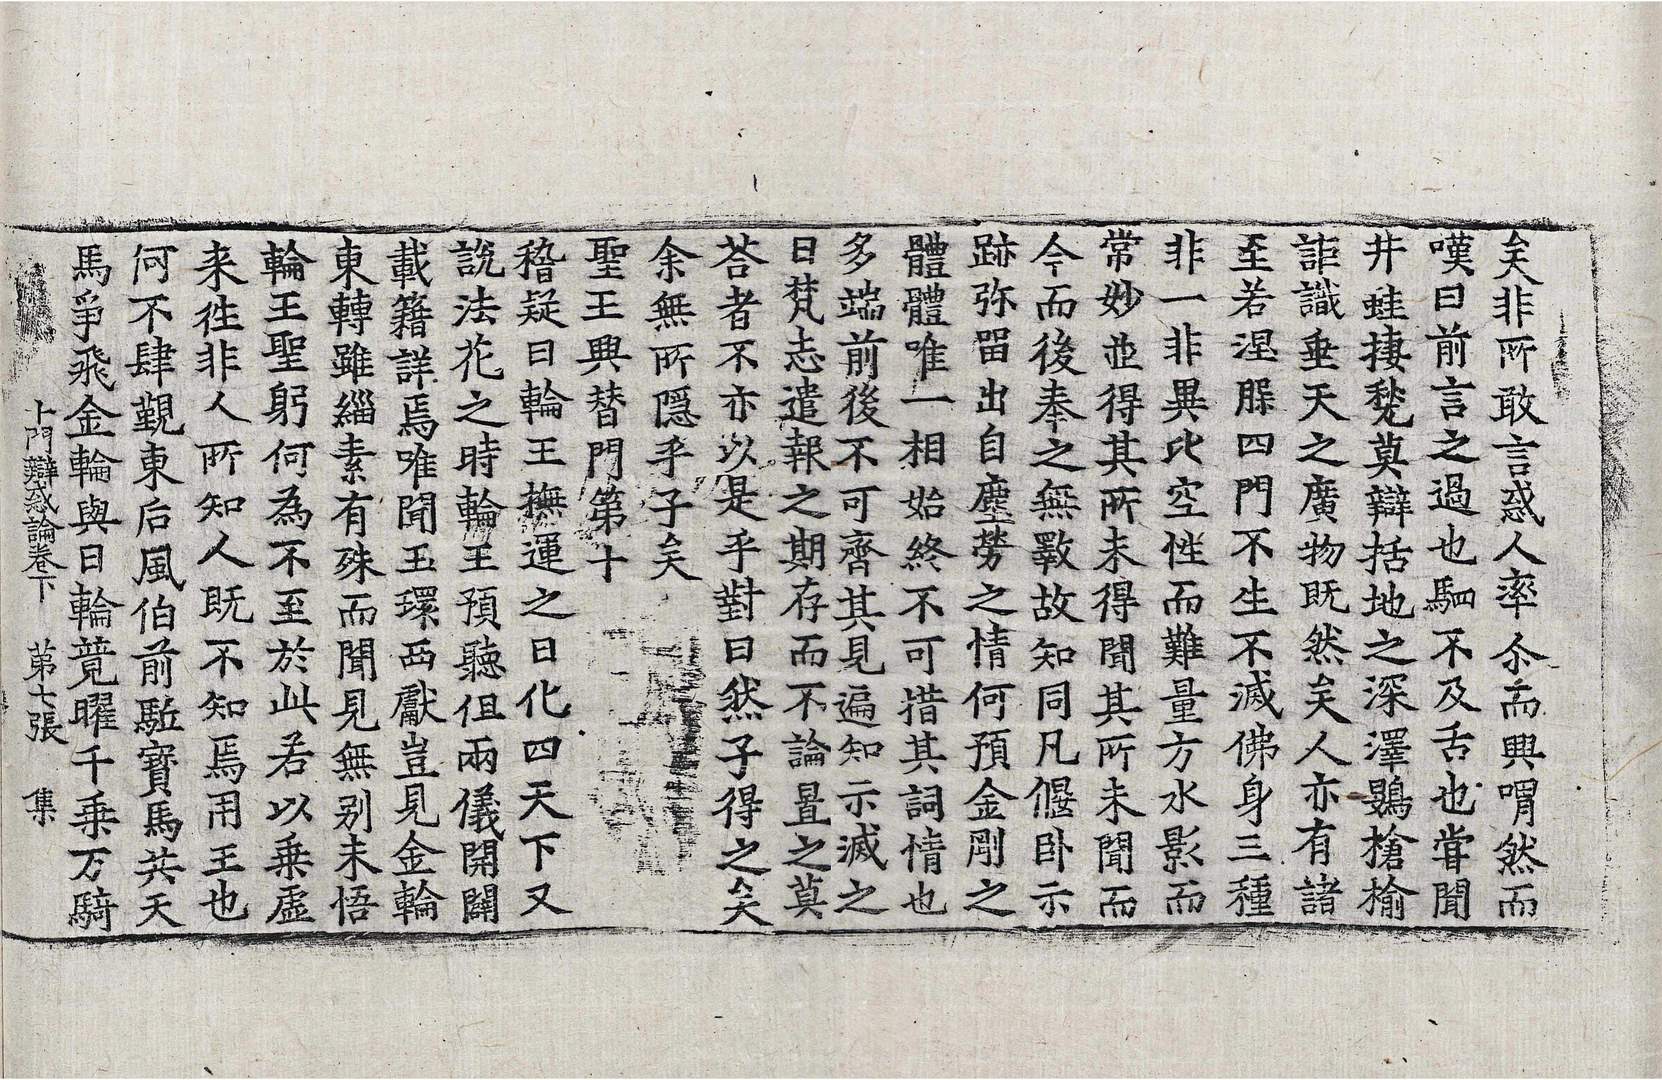 矣非所敢言惑人率尒而興喟然而
嘆曰前言之過也駟不及舌也甞聞
井蛙捿甃莫辯括地之深澤鷃槍榆
詎識垂天之廣物旣然矣人亦有諸
至若涅脲四門不生不滅佛身三種
非一非異比空性而難量方水影而
常妙並得其所未得聞其所未聞而
今而後奉之無斁故知同凡偃卧示
跡弥留出自塵勞之情何預金剛之
體體唯一相始終不可措其詞情也
多端前後不可齊其見遍知示滅之
日梵志遣報之期存而不論置之莫
荅者不亦以是乎對曰然子得之矣
余無所隱乎子矣
聖王興替門第十
稽疑曰輪王撫運之日化四天下又
說法花之時輪王預聽但兩儀開闢
載籍詳焉唯聞玉環西獻豈見金輪
東轉雖緇素有殊而聞見無别未悟
輪王聖躬何為不至於此若以乗虛
来徃非人所知人旣不知焉用王也
何不肆覲東后風伯前駈寶馬共天
馬爭飛金輪與日輪競曜千乗万騎
十門辯惑論卷下 第七張 集